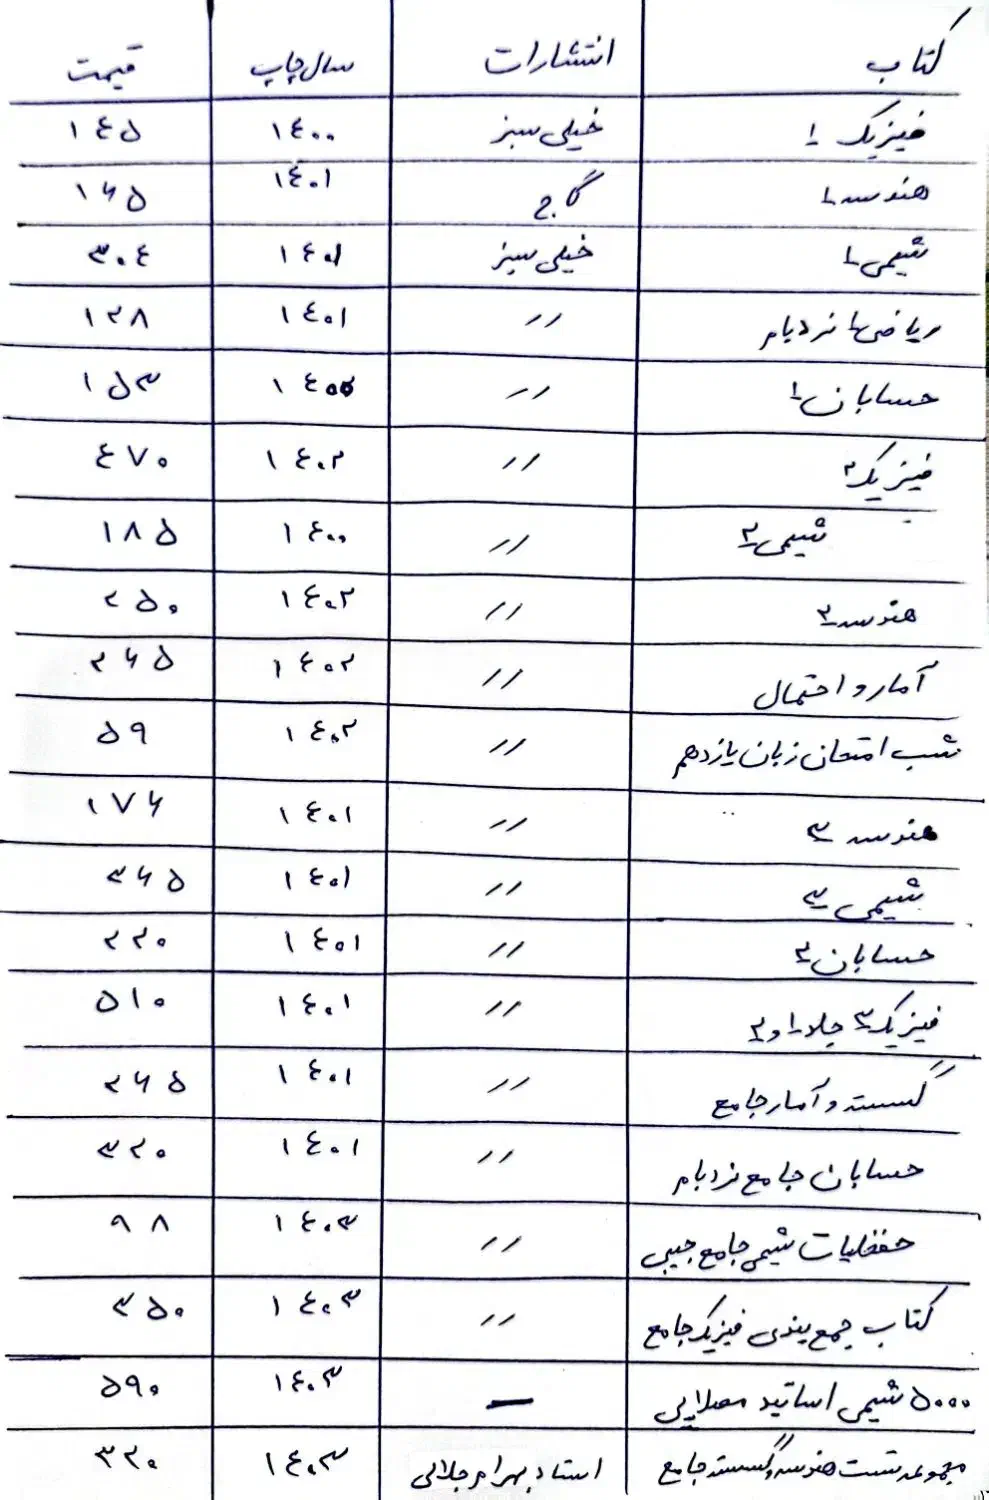 کتاب انتشارات سال چاپ قیمت
فیزیک ۱ خیلی سبز ۱۴۰۰ ۱۴۵
هندسه ۱ گاج ۱۴۰۱ ۱۶۵
شیمی ۱ خیلی سبز ۱۴۰۱ ۳۰۴
ریاضی ۱ نردبام // ۱۴۰۱ ۱۲۸
حسابان ۱ // ۱۵۳
فیزیک ۲ // ۱۴۰۲ ۴۷۰
شیمی ۲ // ۱۴۰۰ ۱۸۵
هندسه ۲ // ۱۴۰۲ ۲۵۰
آمار و احتمال // ۱۴۰۲ ۲۶۵
شب امتحان زبان یازدهم // ۱۴۰۲ ۵۹
هندسه ۳ // ۱۴۰۱ ۱۷۶
شیمی ۳ // ۱۴۰۱ ۳۶۵
حسابان ۲ // ۱۴۰۱ ۲۲۰
فیزیک ۳ جلد ۱ و ۲ // ۱۴۰۱ ۵۱۰
گسسته و آمار جامع // ۱۴۰۱ ۲۶۵
حسابان جامع نردبام // ۱۴۰۱ ۳۲۰
حفظیات شیمی جامع جیبی // ۱۴۰۳ ۹۸
کتاب جمع بندی فیزیک جامع // ۱۴۰۳ ۳۵۰
۵۰۰۰ شیمی اساتید مصلایی — ۱۴۰۳ ۵۹۰
مجموعه تست هندسه و گسسته جامع استاد بهرام جلالی ۱۴۰۳ ۳۲۰